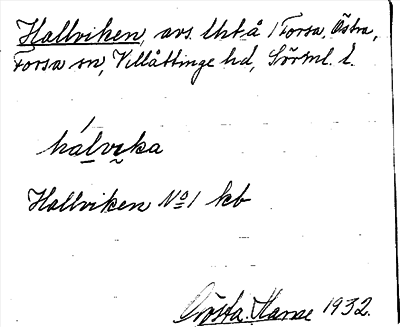 Hallviken, avs. lht å 1 Forsa, Östra,
Forsa sn, Villåttinge hd, Sörml. l.
hálvika
Hallviken No 1 kb
Gösta 1932.